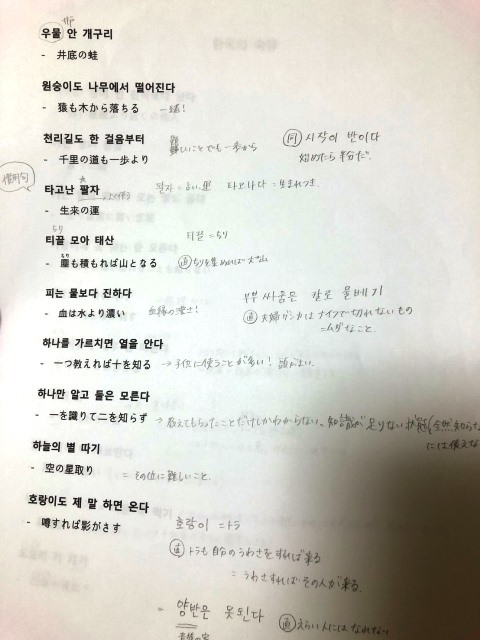 우물 안 개구리
- 井底の蛙
원숭이도 나무에서 떨어진다
- 猿も木から落ちる 一緒!
천리길도 한 걸음부터 難しいことでも一歩から 同 시작이 반이다
- 千里の道も一歩より 始めたら半分だ。
慣用句
타고난 팔자 팔자 = 占い 타고나다 = 生まれつき
- 生来の運
ちり
티끌 모아 태산 티끌 = ちり
- 塵も積もれば山となる 直 ちりを集めれば大山
피는 물보다 진하다 부부 싸움은 칼로 물베기
- 血は水より濃い 血縁の濃さ! 直 夫婦ゲンカはナイフで切れないもの
=ムダなこと。
하나를 가르치면 열을 안다
- 一つ教えれば十を知る → 子供に使うことが多い! 頭がよい。
하나만 알고 둘은 모른다
- 一を識りて二を知らず → 教えてもらったことだけしかわからない、知識が足りない状態(全然知らな
には使えな
하늘의 별 따기
- 空の星取り = その位に難しいこと。
호랑이도 제 말 하면 온다
- 噂すれば影がさす 호랑이 = トラ
直 トラも自分のうわさをすれば来る
= うわさすればその人が来る。
- 양반은 못된다 直 えらい人にはなれない